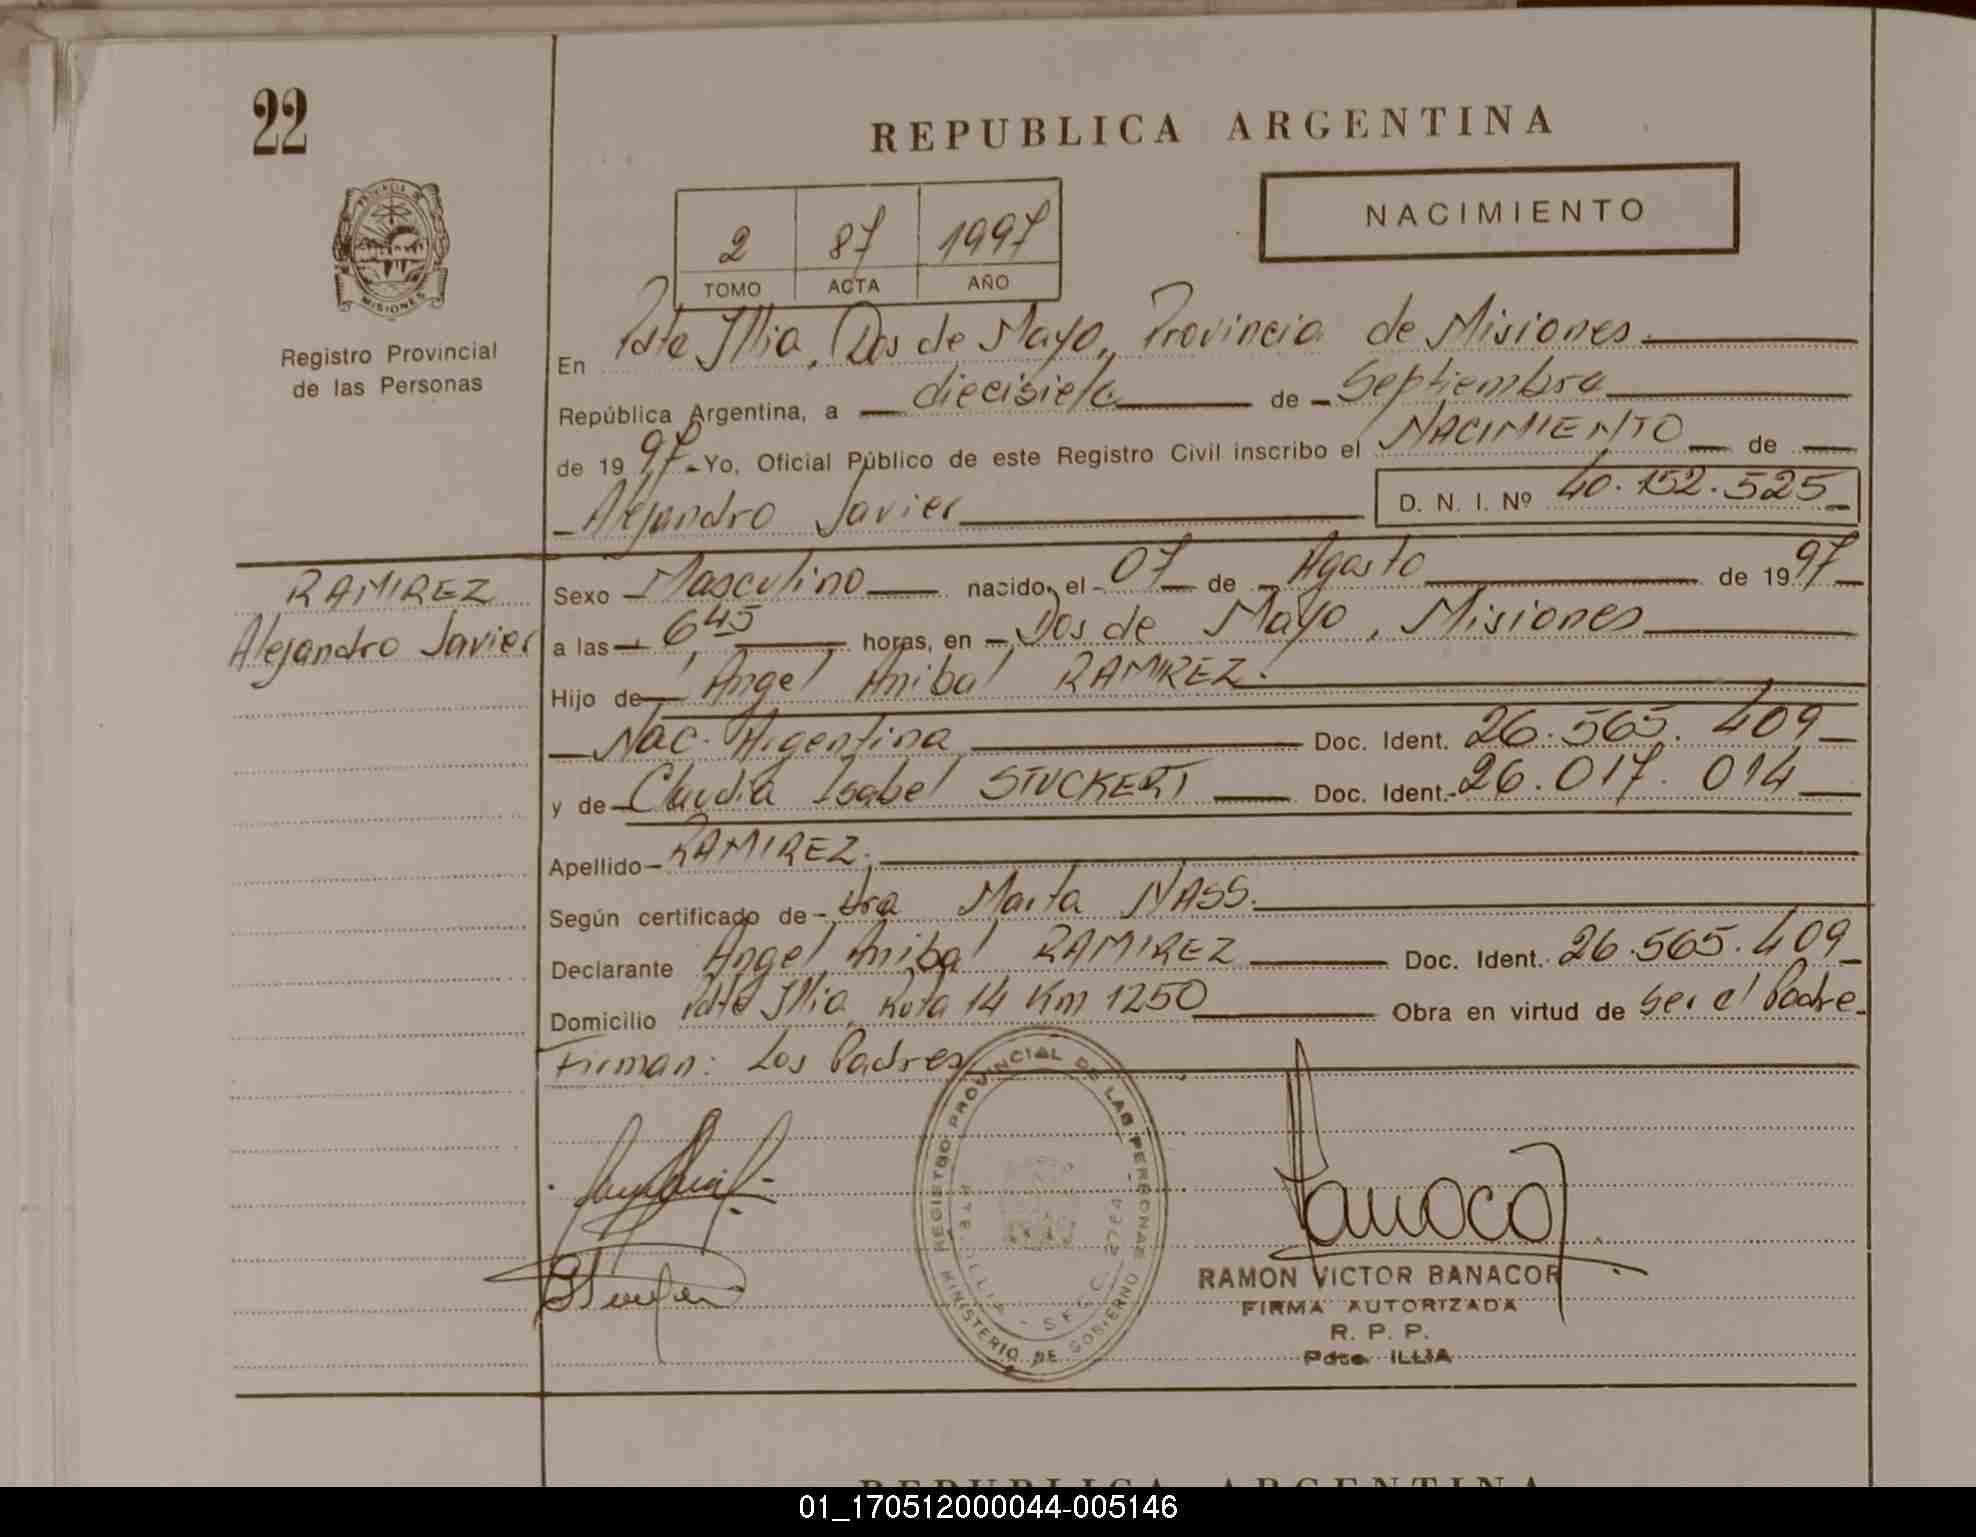 22
REPUBLICA ARGENTINA
NACIMIENTO
2 87 1997
TOMO ACTA AÑO
PROVINCIA DE
MISIONES
Registro Provincial
de las Personas
En Pdte Illia, Dos de Mayo, Provincia de Misiones.
República Argentina, a diecisiete de Septiembre
de 1997 - Yo, Oficial Público de este Registro Civil inscribo el NACIMIENTO de
Alejandro Javier D. N. I. Nº 40.152.525
RAMIREZ
Alejandro Javier
Sexo Masculino nacido, el 07 de Agosto de 1997
a las 6,45 horas, en Dos de Mayo, Misiones
Hijo de Angel Anibal RAMIREZ.
Nac. Argentina Doc. Ident. 26.565.409
y de Claudia Isabel STUCKERT Doc. Ident. 26.017.014
Apellido RAMIREZ.
Según certificado de Dra Marta NASS.
Declarante Angel Anibal RAMIREZ Doc. Ident. 26.565.409
Domicilio Pdte Illia, Ruta 14 Km 1250 Obra en virtud de ser el Padre
Firman: Los Padres
REGISTRO PROVINCIAL DE LAS PERSONAS
MINISTERIO DE GOBIERNO
RAMON VICTOR BANACOR
FIRMA AUTORIZADA
R. P. P.
Pdte. ILLIA
REPUBLICA ARGENTINA
01_170512000044-005146